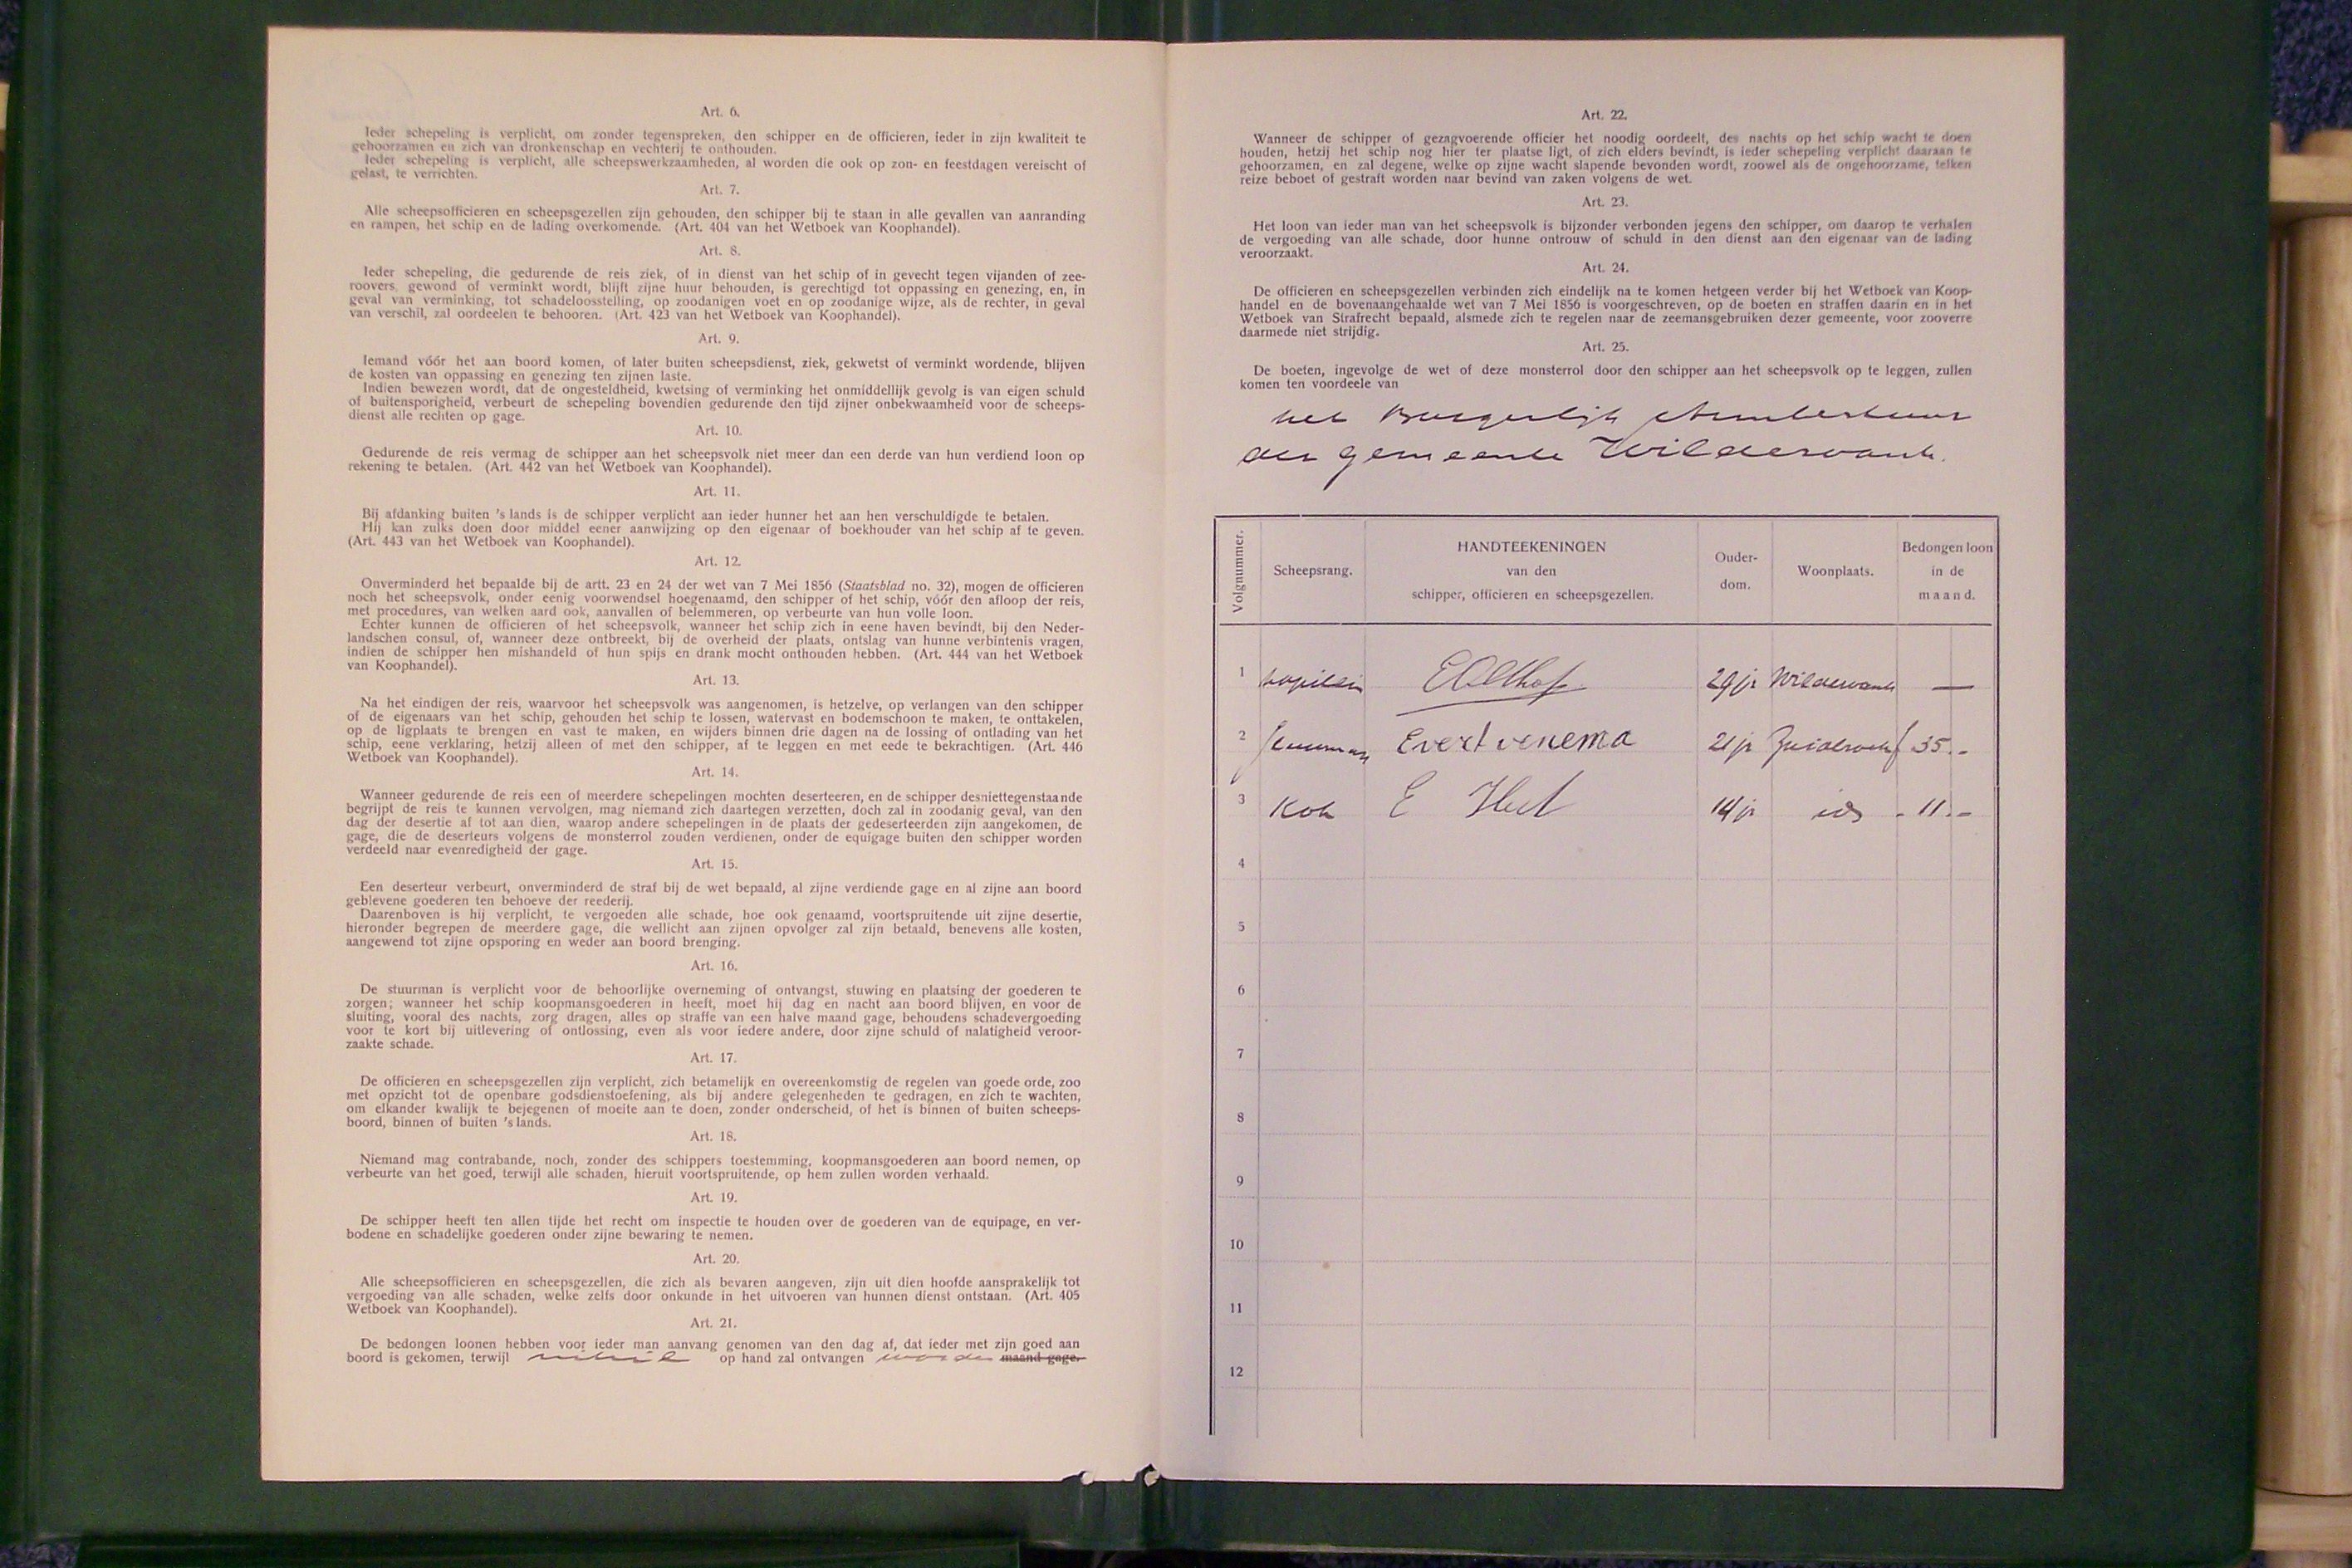 Art. 6.
Ieder schepeling is verplicht, om zonder tegenspreken, den schipper en de officieren, ieder in zijn kwaliteit te
gehoorzamen en zich van dronkenschap en vechterij te onthouden.
Ieder schepeling is verplicht, alle scheepswerkzaamheden, al worden die ook op zon- en feestdagen vereischt of
gelast, te verrichten.
Art. 7.
Alle scheepsofficieren en scheepsgezellen zijn gehouden, den schipper bij te staan in alle gevallen van aanranding
en rampen, het schip en de lading overkomende. (Art. 404 van het Wetboek van Koophandel).
Art. 8.
Ieder schepeling, die gedurende de reis ziek, of in dienst van het schip of in gevecht tegen vijanden of zee-
roovers, gewond of verminkt wordt, blijft zijne huur behouden, is gerechtigd tot oppassing en genezing, en, in
geval van verminking, tot schadeloosstelling, op zoodanigen voet en op zoodanige wijze, als de rechter, in geval
van verschil, zal oordeelen te behooren. (Art. 423 van het Wetboek van Koophandel).
Art. 9.
Iemand vóór het aan boord komen, of later buiten scheepsdienst, ziek, gekwetst of verminkt wordende, blijven
de kosten van oppassing en genezing ten zijnen laste.
Indien bewezen wordt, dat de ongesteldheid, kwetsing of verminking het onmiddellijk gevolg is van eigen schuld
of buitensporigheid, verbeurt de schepeling bovendien gedurende den tijd zijner onbekwaamheid voor de scheeps-
dienst alle rechten op gage.
Art. 10.
Gedurende de reis vermag de schipper aan het scheepsvolk niet meer dan een derde van hun verdiend loon op
rekening te betalen. (Art. 442 van het Wetboek van Koophandel).
Art. 11.
Bij afdanking buiten 's lands is de schipper verplicht aan ieder hunner het aan hen verschuldigde te betalen.
Hij kan zulks doen door middel eener aanwijzing op den eigenaar of boekhouder van het schip af te geven.
(Art. 443 van het Wetboek van Koophandel).
Art. 12.
Onverminderd het bepaalde bij de artt. 23 en 24 der wet van 7 Mei 1856 (Staatsblad no. 32), mogen de officieren
noch het scheepsvolk, onder eenig voorwendsel hoegenaamd, den schipper of het schip, vóór den afloop der reis,
met procedures, van welken aard ook, aanvallen of belemmeren, op verbeurte van hun volle loon.
Echter kunnen de officieren of het scheepsvolk, wanneer het schip zich in eene haven bevindt, bij den Neder-
landschen consul, of, wanneer deze ontbreekt, bij de overheid der plaats, ontslag van hunne verbintenis vragen,
indien de schipper hen mishandeld of hun spijs en drank mocht onthouden hebben. (Art. 444 van het Wetboek
van Koophandel).
Art. 13.
Na het eindigen der reis, waarvoor het scheepsvolk was aangenomen, is hetzelve, op verlangen van den schipper
of de eigenaars van het schip, gehouden het schip te lossen, watervast en bodemschoon te maken, te onttakelen,
op de ligplaats te brengen en vast te maken, en wijders binnen drie dagen na de lossing of ontlading van het
schip, eene verklaring, hetzij alleen of met den schipper, af te leggen en met eede te bekrachtigen. (Art. 446
Wetboek van Koophandel).
Art. 14.
Wanneer gedurende de reis een of meerdere schepelingen mochten deserteeren, en de schipper desniettegenstaande
begrijpt de reis te kunnen vervolgen, mag niemand zich daartegen verzetten, doch zal in zoodanig geval, van den
dag der desertie af tot aan dien, waarop andere schepelingen in de plaats der gedeserteerden zijn aangekomen, de
gage, die de deserteurs volgens de monsterrol zouden verdienen, onder de equigage buiten den schipper worden
verdeeld naar evenredigheid der gage.
Art. 15.
Een deserteur verbeurt, onverminderd de straf bij de wet bepaald, al zijne verdiende gage en al zijne aan boord
geblevene goederen ten behoeve der reederij.
Daarenboven is hij verplicht, te vergoeden alle schade, hoe ook genaamd, voortspruitende uit zijne desertie,
hieronder begrepen de meerdere gage, die wellicht aan zijnen opvolger zal zijn betaald, benevens alle kosten,
aangewend tot zijne opsporing en weder aan boord brenging.
Art. 16.
De stuurman is verplicht voor de behoorlijke overneming of ontvangst, stuwing en plaatsing der goederen te
zorgen; wanneer het schip koopmansgoederen in heeft, moet hij dag en nacht aan boord blijven, en voor de
sluiting, vooral des nachts, zorg dragen, alles op straffe van een halve maand gage, behoudens schadevergoeding
voor te kort bij uitlevering of ontlossing, even als voor iedere andere, door zijne schuld of nalatigheid veroor-
zaakte schade.
Art. 17.
De officieren en scheepsgezellen zijn verplicht, zich betamelijk en overeenkomstig de regelen van goede orde, zoo
met opzicht tot de openbare godsdienstoefening, als bij andere gelegenheden te gedragen, en zich te wachten,
om elkander kwalijk te bejegenen of moeite aan te doen, zonder onderscheid, of het is binnen of buiten scheeps-
boord, binnen of buiten 's lands.
Art. 18.
Niemand mag contrabande, noch, zonder des schippers toestemming, koopmansgoederen aan boord nemen, op
verbeurte van het goed, terwijl alle schaden, hieruit voortspruitende, op hem zullen worden verhaald.
Art. 19.
De schipper heeft ten allen tijde het recht om inspectie te houden over de goederen van de equipage, en ver-
bodene en schadelijke goederen onder zijne bewaring te nemen.
Art. 20.
Alle scheepsofficieren en scheepsgezellen, die zich als bevaren aangeven, zijn uit dien hoofde aansprakelijk tot
vergoeding van alle schaden, welke zelfs door onkunde in het uitvoeren van hunnen dienst ontstaan. (Art. 405
Wetboek van Koophandel).
Art. 21.
De bedongen loonen hebben voor ieder man aanvang genomen van den dag af, dat ieder met zijn goed aan
boord is gekomen, terwijl op hand zal ontvangen worden maand gage.
Art. 22.
Wanneer de schipper of gezagvoerende officier het noodig oordeelt, des nachts op het schip wacht te doen
houden, hetzij het schip nog hier ter plaatse ligt, of zich elders bevindt, is ieder schepeling verplicht daaraan te
gehoorzamen, en zal degene, welke op zijne wacht slapende bevonden wordt, zoowel als de ongehoorzame, telken
reize beboet of gestraft worden naar bevind van zaken volgens de wet.
Art. 23.
Het loon van ieder man van het scheepsvolk is bijzonder verbonden jegens den schipper, om daarop te verhalen
de vergoeding van alle schade, door hunne ontrouw of schuld in den dienst aan den eigenaar van de lading
veroorzaakt.
Art. 24.
De officieren en scheepsgezellen verbinden zich eindelijk na te komen hetgeen verder bij het Wetboek van Koop-
handel en de bovenaangehaalde wet van 7 Mei 1856 is voorgeschreven, op de boeten en straffen daarin en in het
Wetboek van Strafrecht bepaald, alsmede zich te regelen naar de zeemansgebruiken dezer gemeente, voor zooverre
daarmede niet strijdig.
Art. 25.
De boeten, ingevolge de wet of deze monsterrol door den schipper aan het scheepsvolk op te leggen, zullen
komen ten voordeele van
het Burgerlijk Armbestuur
der gemeente Wildervank.
Volgnummer. Scheepsrang. HANDTEEKENINGEN van den schipper, officieren en scheepsgezellen. Ouder-dom. Woonplaats. Bedongen loon in de maand.
1 kapitein E Olthof 29 jr Wildervank —
2 stuurman Evert venema 21 jr Zuidbroek f 35.-
3 Kok E 14 jr id - 11.-
4
5
6
7
8
9
10
11
12